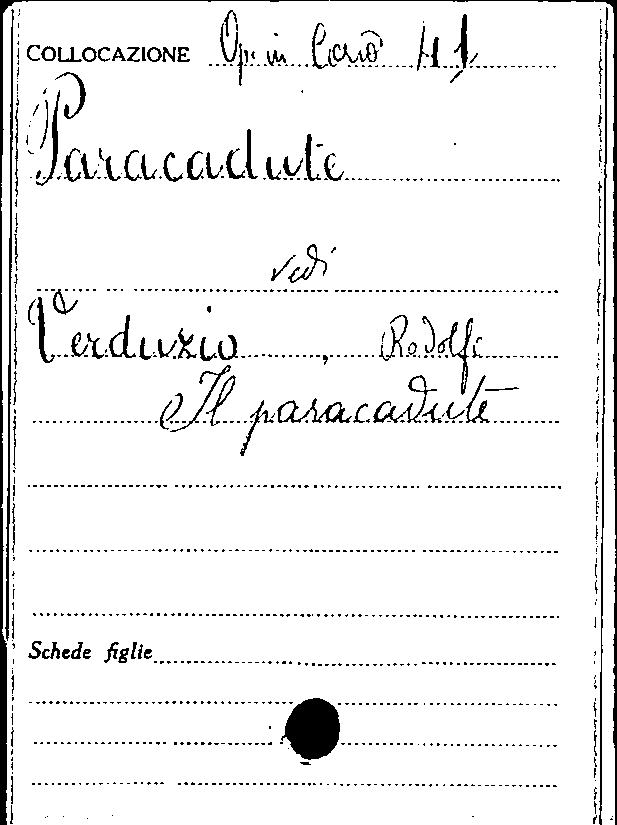 COLLOCAZIONE Op. in Corso 41
Paracadute
vedi
Verduzio, Rodolfo
Il paracadute
Schede figlie